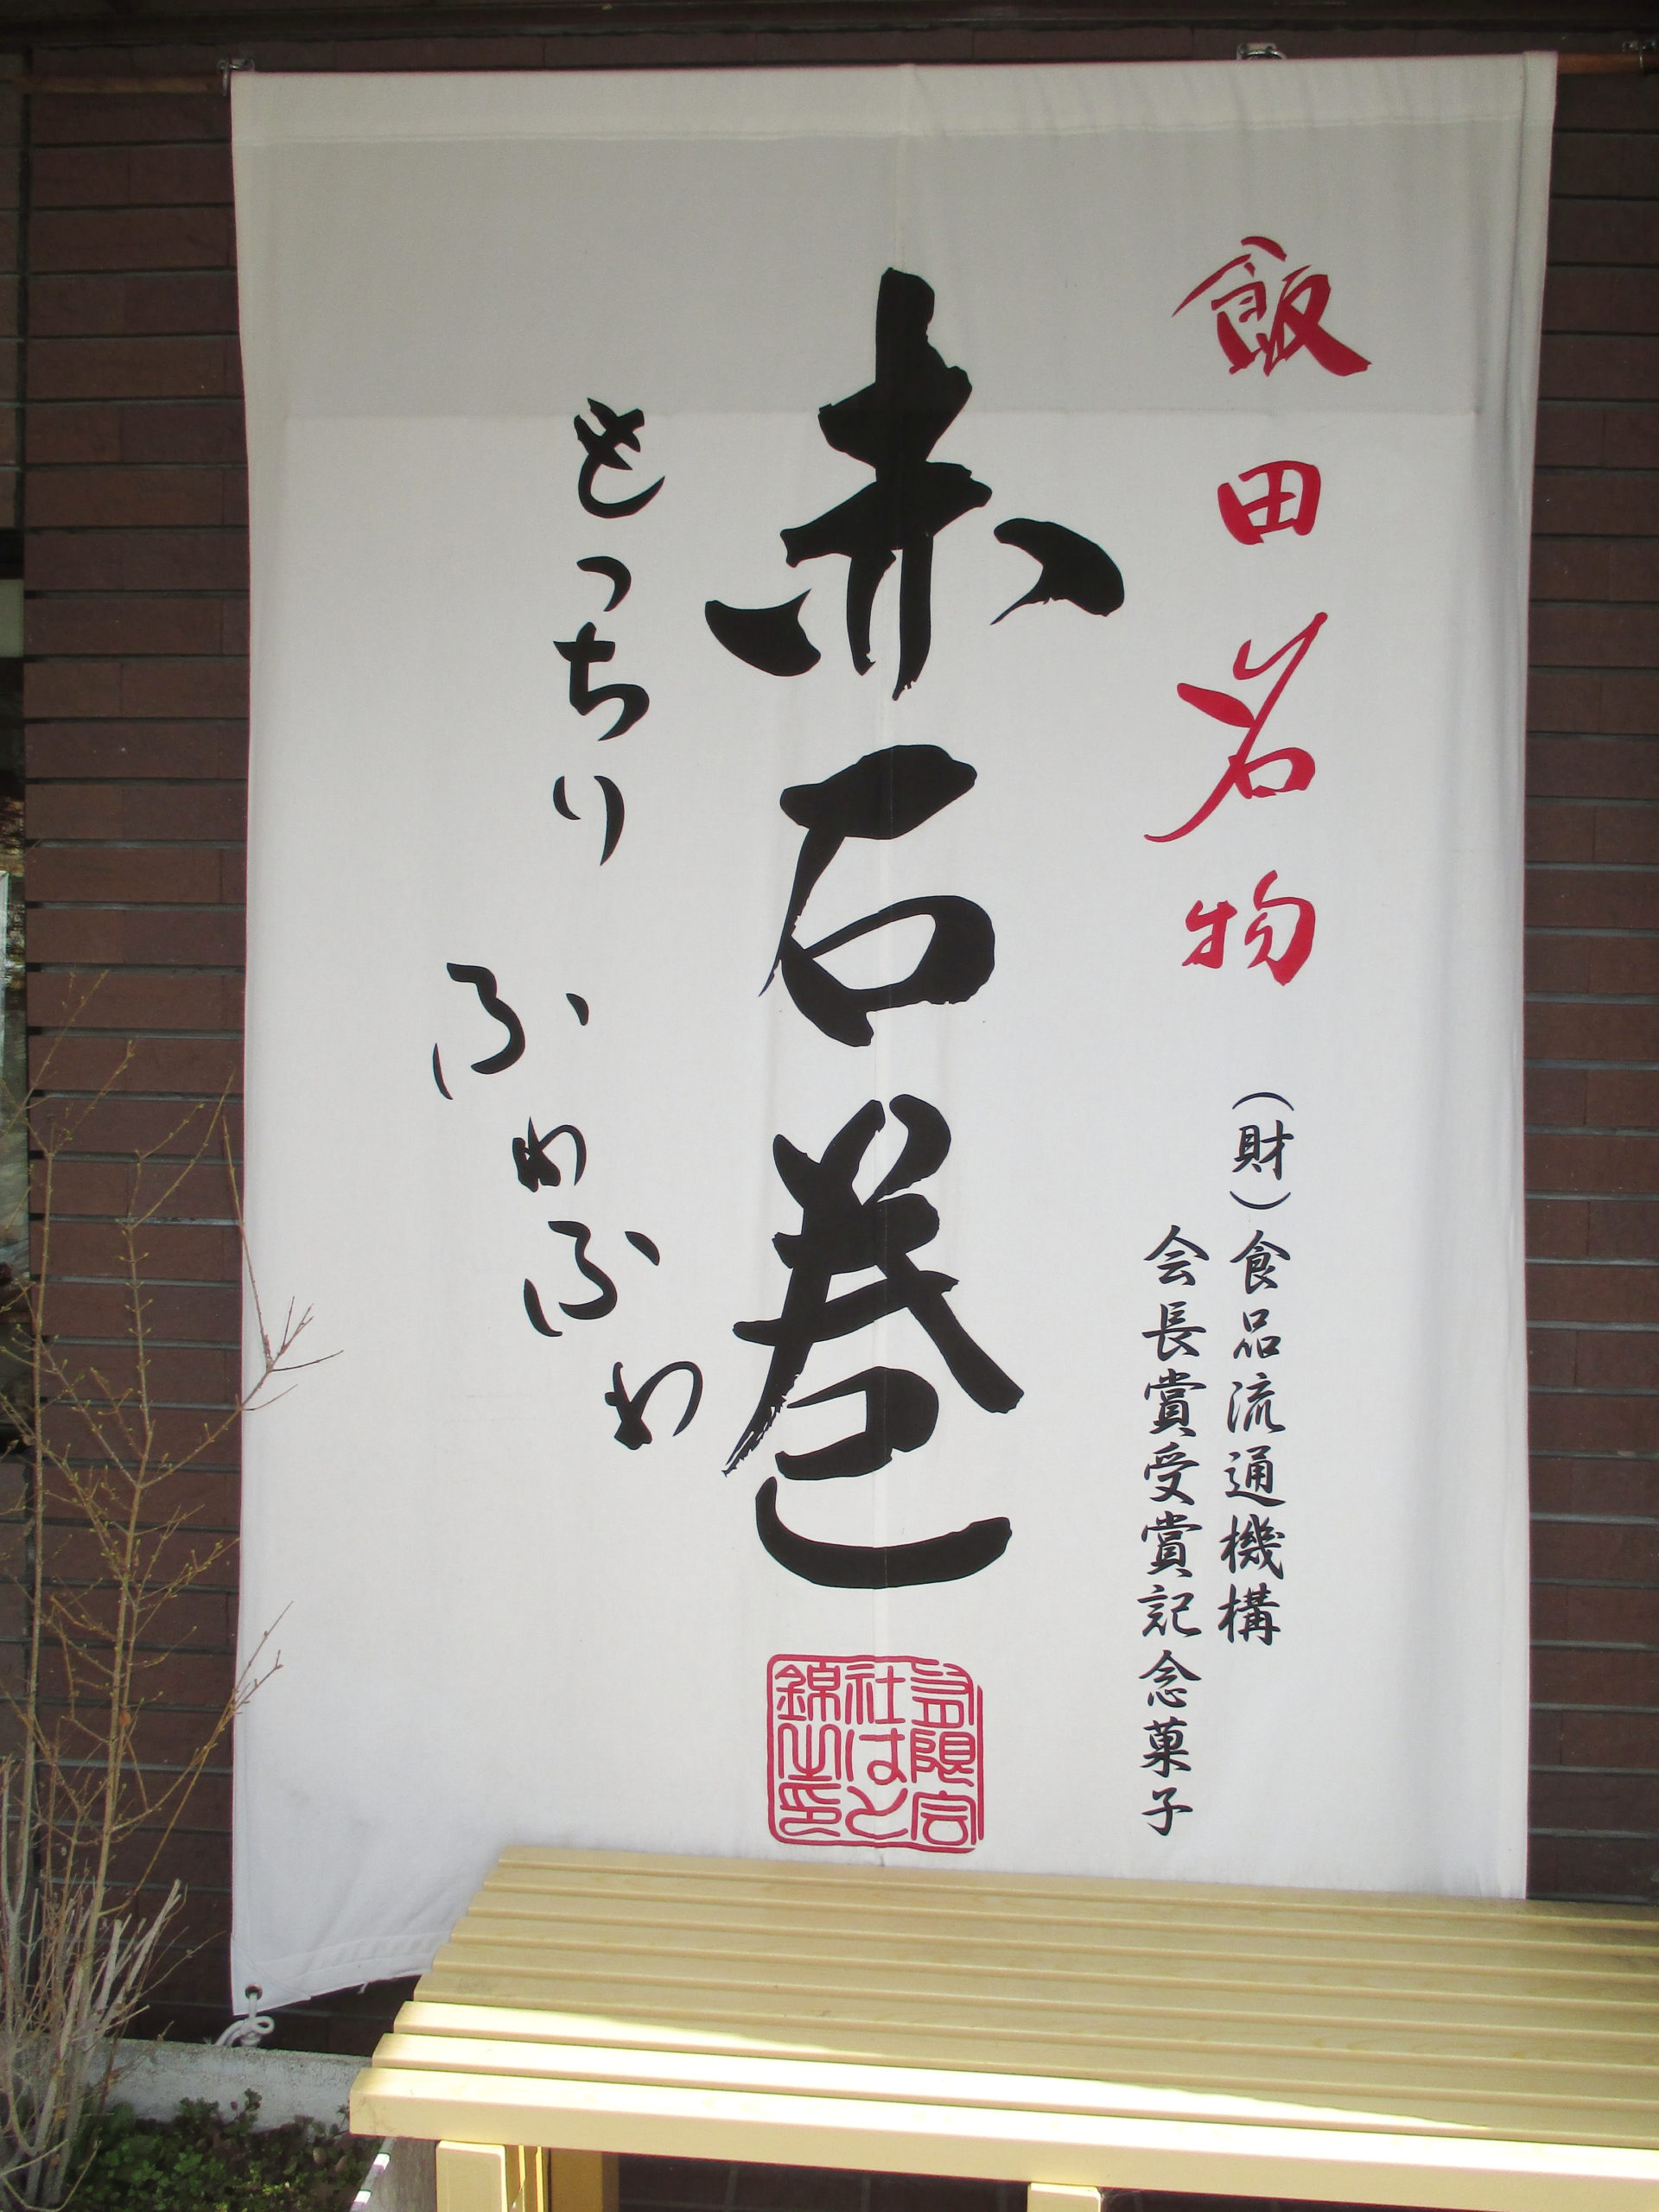 飯田名物
(財)食品流通機構
会長賞受賞記念菓子
赤石巻
もっちり
ふわふわ
有限会
社はと
錦之印